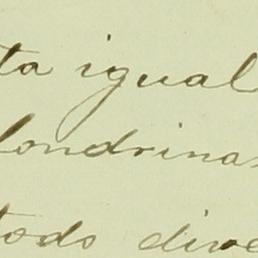 ta igual
londrinas
todo dive